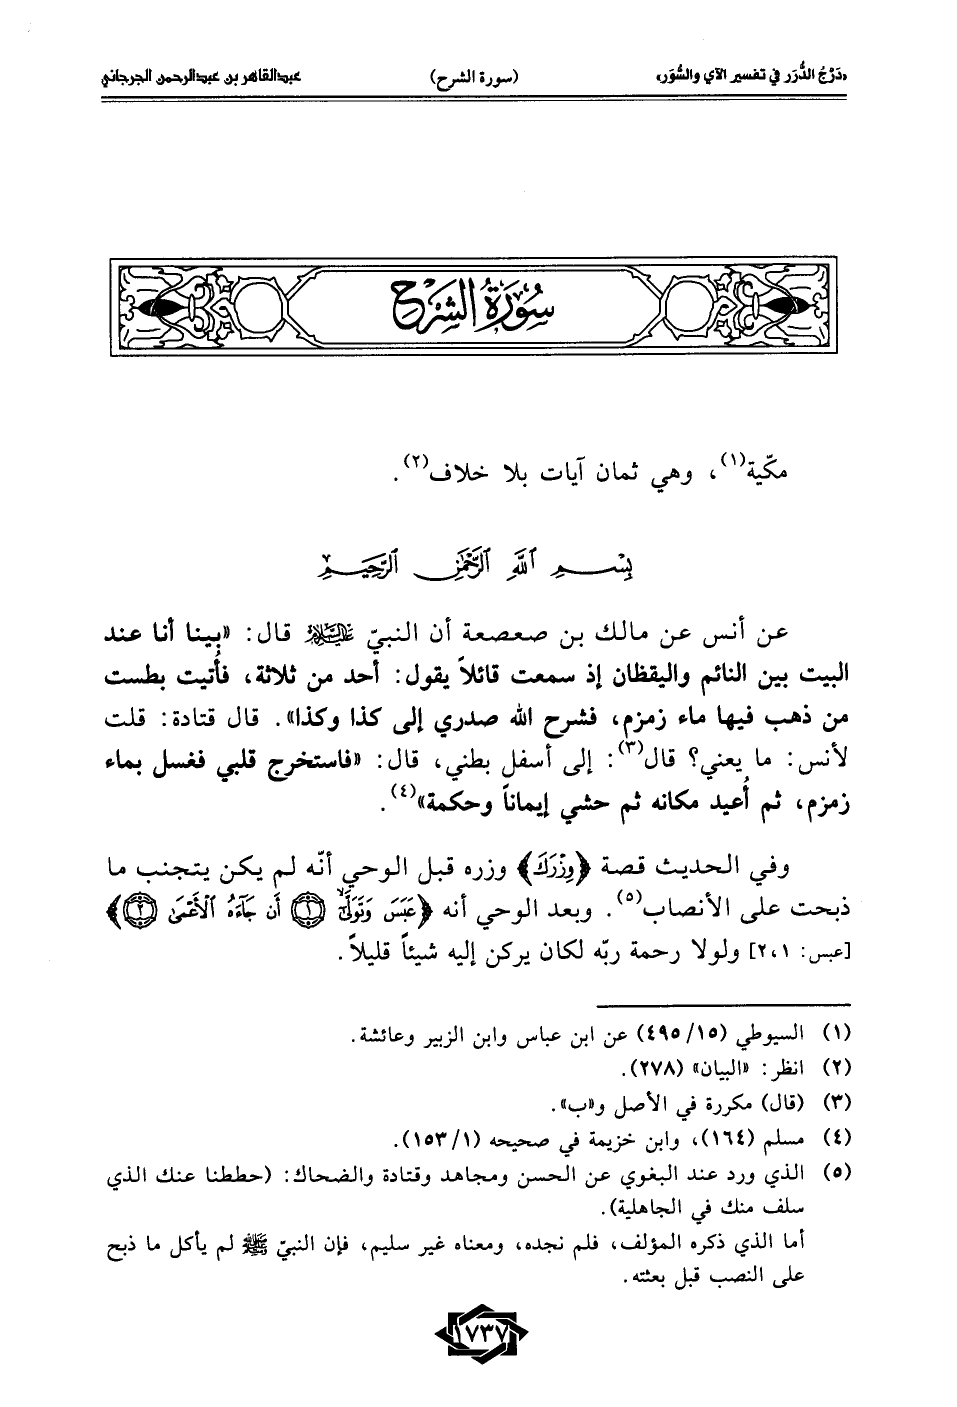 «دَرْجُ الدُّرَر في تفسير الآي والسُّوَر» (سورة الشرح) عبدالقاهر بن عبدالرحمن الجرجاني
سُورَةُ الشَّرْحِ
مكّية(١)، وهي ثمان آيات بلا خلاف(٢).
بِسْمِ اللَّهِ الرَّحْمَٰنِ الرَّحِيمِ
عن أنس عن مالك بن صعصعة أن النبيّ عليه السلام قال: «بينا أنا عند
البيت بين النائم واليقظان إذ سمعت قائلاً يقول: أحد من ثلاثة، فأُتيت بطست
من ذهب فيها ماء زمزم، فشرح الله صدري إلى كذا وكذا». قال قتادة: قلت
لأنس: ما يعني؟ قال(٣): إلى أسفل بطني، قال: «فاستخرج قلبي فغسل بماء
زمزم، ثم أُعيد مكانه ثم حشي إيماناً وحكمة»(٤).
وفي الحديث قصة ﴿وِزْرَكَ﴾ وزره قبل الوحي أنّه لم يكن يتجنب ما
ذبحت على الأنصاب(٥). وبعد الوحي أنه ﴿عَبَسَ وَتَوَلَّىٰٓ ١ أَن جَآءَهُ ٱلْأَعْمَىٰ ٢﴾
[عبس: ١،٢] ولولا رحمة ربّه لكان يركن إليه شيئاً قليلاً.
(١) السيوطي (١٥/٤٩٥) عن ابن عباس وابن الزبير وعائشة.
(٢) انظر: «البيان» (٢٧٨).
(٣) (قال) مكررة في الأصل و«ب».
(٤) مسلم (١٦٤)، وابن خزيمة في صحيحه (١/١٥٣).
(٥) الذي ورد عند البغوي عن الحسن ومجاهد وقتادة والضحاك: (حططنا عنك الذي
سلف منك في الجاهلية).
أما الذي ذكره المؤلف، فلم نجده، ومعناه غير سليم، فإن النبيّ ﷺ لم يأكل ما ذبح
على النصب قبل بعثته.
١٧٣٧